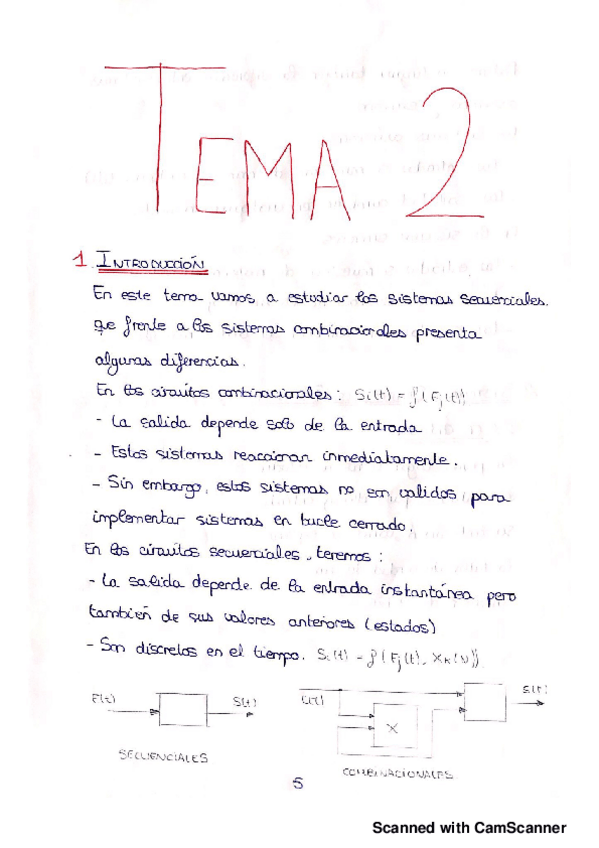 TEMA 2
1. INTRODUCCIÓN
En este tema vamos a estudiar los sistemas secuenciales.
que frente a los sistemas combinacionales presenta
algunas diferencias.
En los circuitos combinacionales: Si(t) = f(Fj(t))
- La salida depende solo de la entrada
- Estos sistemas reaccionan inmediatamente.
- Sin embargo, estos sistemas no son validos para
implementar sistemas en bucle cerrado.
En los circuitos secuenciales, tenemos:
- La salida depende de la entrada instantánea pero
también de sus valores anteriores (estados)
- Son discretos en el tiempo. Si(t) = f(Fj(t), XK(N))
E(t) S(t) E(t) S(t)
X
SECUENCIALES
COMBINACIONALES
5
Scanned with CamScanner